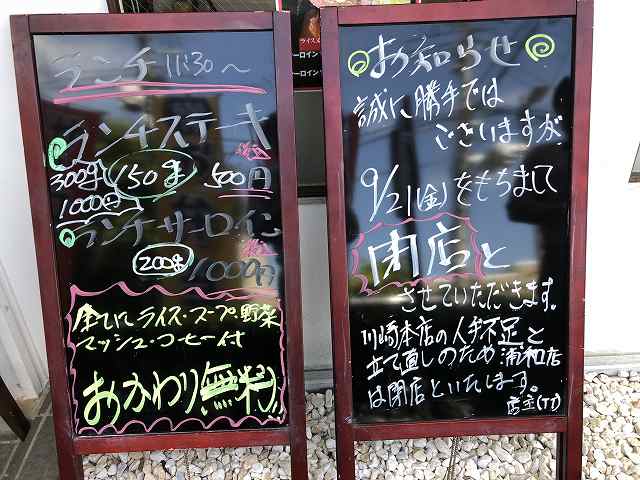 ランチ 11:30～
ランチステーキ
300g 150g 500円
1000円
ランチサーロイン
200g 1000円
全てにライス・スープ・野菜
マッシュ・コーヒー付
おかわり無料
お知らせ
誠に勝手では
ございますが
9/21(金)をもちまして
閉店と
させていただきます。
川崎本店の人手不足と
立て直しのため浦和店
は閉店といたします。